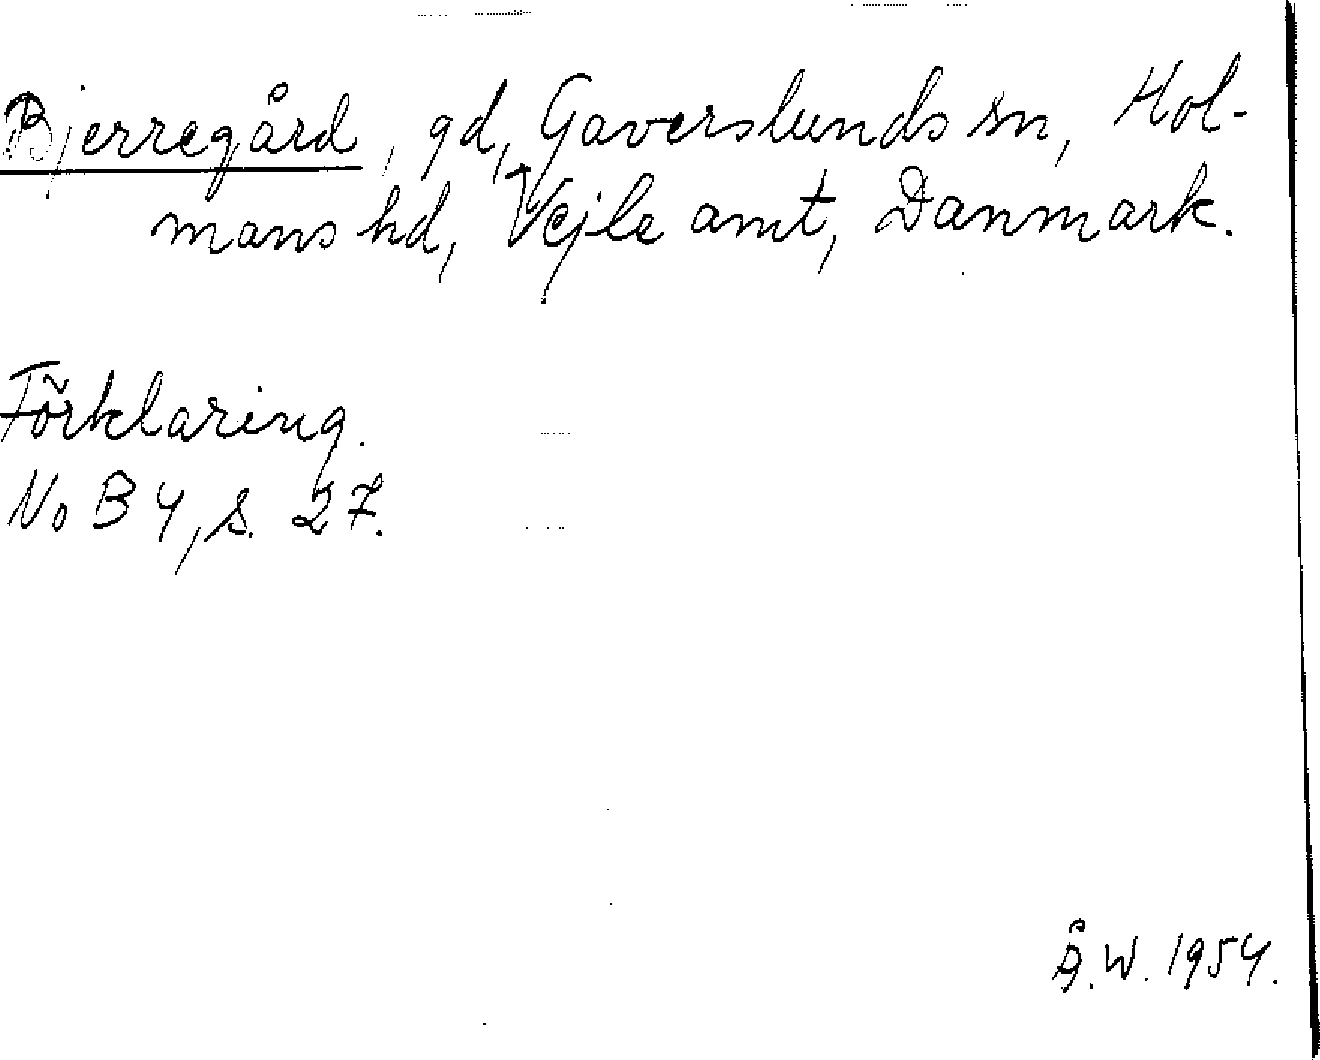 Bjerregård, gd, Gaverslunds sn, Hol-
mans hd, Vejle amt, Danmark.
Förklaring.
No B 4, s. 27.
Å.W. 1954.